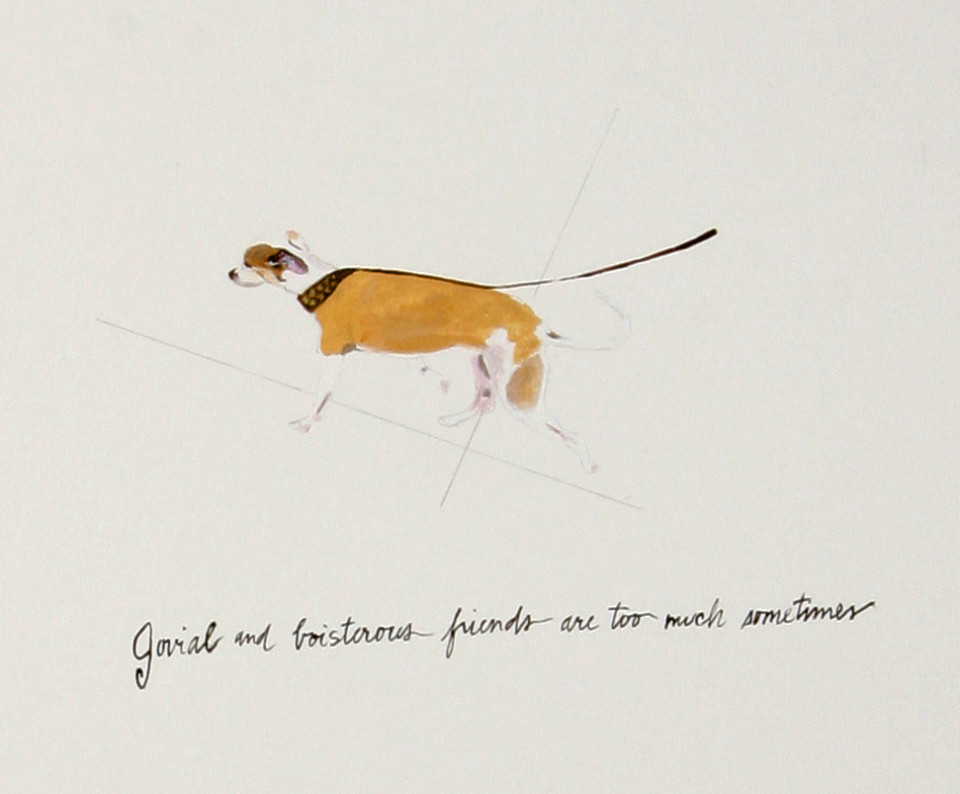 Jovial and boisterous friends are too much sometimes